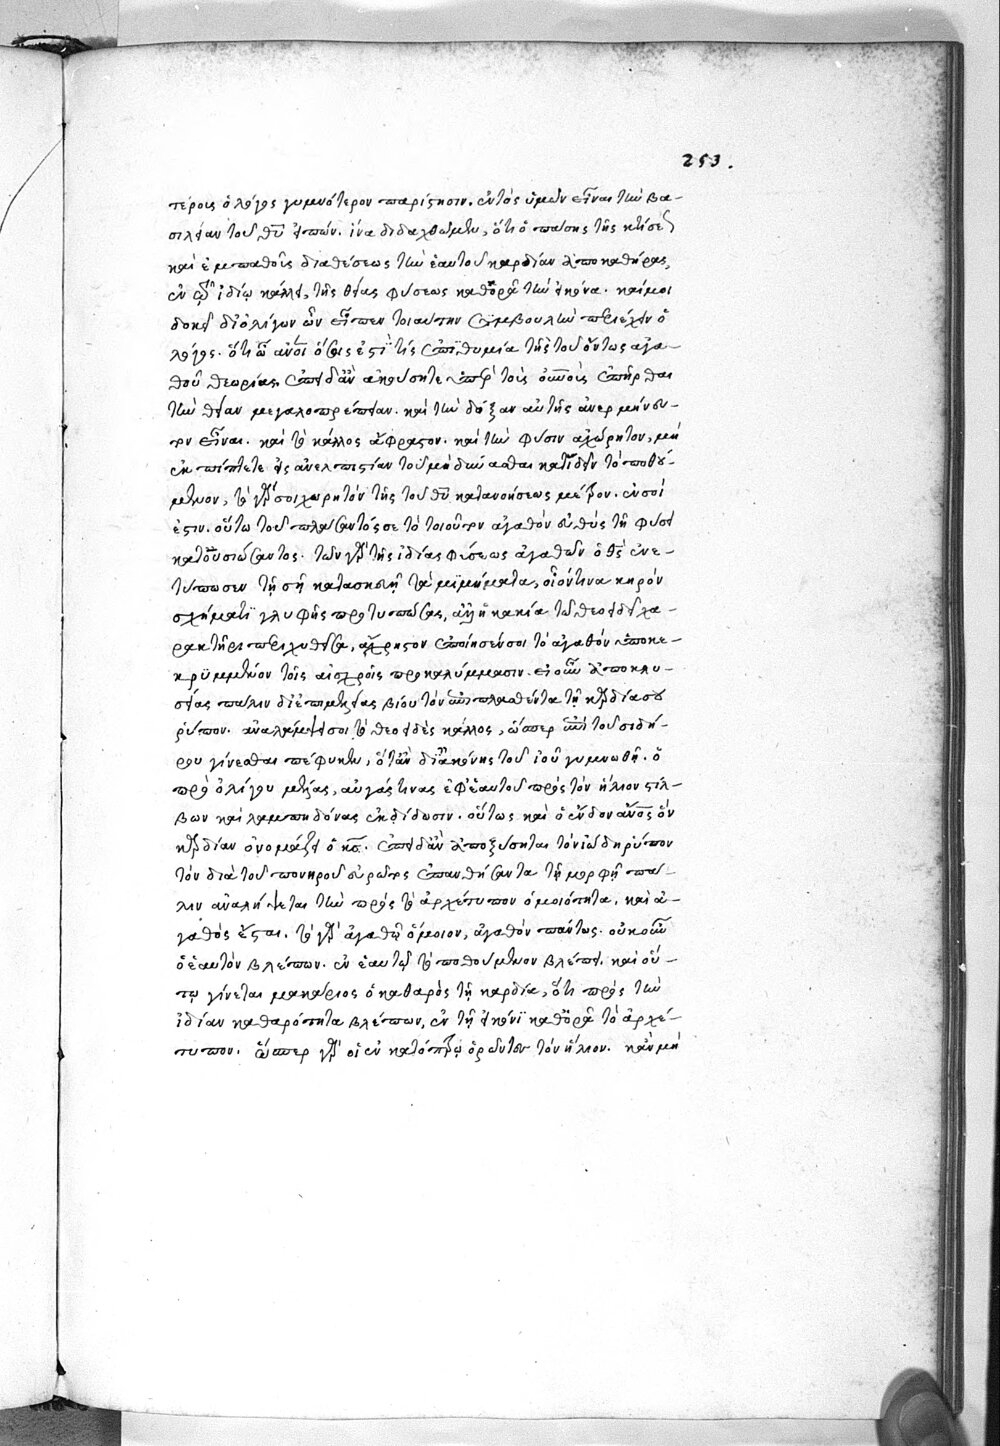 253.
τέροις ὁ λόγος γυμνότερον παρίστησιν. ἐντὸς ὑμῶν εἶναι τὴν βα-
σιλείαν τοῦ θῦ εἰπών. ἵνα διδαχθῶμεν, ὅτι ὁ πάσης τῆς κτίσεως
καὶ ἐμπαθοῦς διαθέσεως τὴν ἑαυτοῦ καρδίαν ἀποκαθήρας,
ἐν τῷ ἰδίῳ κάλλει, τῆς θείας φύσεως καθορᾷ τὴν εἰκόνα. καί μοι
δοκεῖ δι' ὀλίγων ὧν εἶπεν τοιαύτην συμβουλὴν περιέχειν ὁ
λόγος. ὅτι ὦ ἄνοι ὅσοις ἐστί τις ἐπιθυμία τῆς τοῦ ὄντως ἀγα-
θοῦ θεωρίας, ἐπειδὰν ἀκούσητε ὑπὲρ τοὺς οὐνοὺς ἐπῆρθαι
τὴν θείαν μεγαλοπρέπειαν. καὶ τὴν δόξαν αὐτῆς ἀνερμήνευ-
τον εἶναι. καὶ τὸ κάλλος ἄφραστον. καὶ τὴν φύσιν ἀχώρητον, μὴ
ἐκπίπτετε εἰς ἀνελπιστίαν τοῦ μὴ δύνασθαι κατιδεῖν τὸ ποθού-
μενον, τὸ γάρ σοι χωρητὸν τῆς τοῦ θῦ κατανοήσεως μέτρον. ἐν σοί
ἐστιν. οὕτω τοῦ πλάσαντός σε τὸ τοιοῦτον ἀγαθὸν εὐθὺς τῇ φύσει
κατουσιώσαντος. τῶν γὰρ τῆς ἰδίας φύσεως ἀγαθῶν ὁ θς ἐνε-
τύπωσεν τῇ σῇ κατασκευῇ τὰ μιμήματα, οἷόν τινα κηρὸν
σχήματι γλυφῆς προτυπώσας, ἀλλ' ἡ κακία τῷ θεοειδεῖ χα-
ρακτῆρι περιχυθεῖσα, ἄχρηστον ἐποίησέν σοι τὸ ἀγαθὸν ὑποκε-
κρυμμένον τοῖς αἰσχροῖς προκαλύμμασιν. εἰ οὖν ἀποκλύ-
σειας πάλιν δι' ἐπιμελείας βίου τὸν ἐπιπλασθέντα τῇ καρδίᾳ σου
ῥύπον. ἀναλάμψει σοι τὸ θεοειδὲς κάλλος, ὥσπερ ἐπὶ τοῦ σιδή-
ρου γίνεσθαι πέφυκεν, ὅταν δι' ἀκόνης τοῦ ἰοῦ γυμνωθῇ. ὁ
πρὸ ὀλίγου μέλας, αὐγάς τινας ἐφ' ἑαυτοῦ πρὸς τὸν ἥλιον στίλ-
βων καὶ λαμπηδόνας ἐκδίδωσιν. οὕτως καὶ ὁ ἔνδον ἄνος ὃν
καρδίαν ὀνομάζει ὁ κς. ἐπειδὰν ἀποξύσηται τὸν ἰώδη ῥύπον
τὸν διὰ τοῦ πονηροῦ εὐρῶτος ἐπανθήσαντα τῇ μορφῇ πά-
λιν ἀναλήψεται τὴν πρὸς τὸ ἀρχέτυπον ὁμοιότητα, καὶ ἀ-
γαθὸς ἔσται. τὸ γὰρ ἀγαθῷ ὅμοιον, ἀγαθὸν πάντως. οὐκοῦν
ὁ ἑαυτὸν βλέπων. ἐν ἑαυτῷ τὸ ποθούμενον βλέπει. καὶ οὕ-
τω γίνεται μακάριος ὁ καθαρὸς τῇ καρδίᾳ, ὅτι πρὸς τὴν
ἰδίαν καθαρότητα βλέπων, ἐν τῇ εἰκόνι καθορᾷ τὸ ἀρχέ-
τυπον. ὥσπερ γὰρ οἱ ἐν κατόπτρῳ ὁρῶντες τὸν ἥλιον. κἂν μὴ